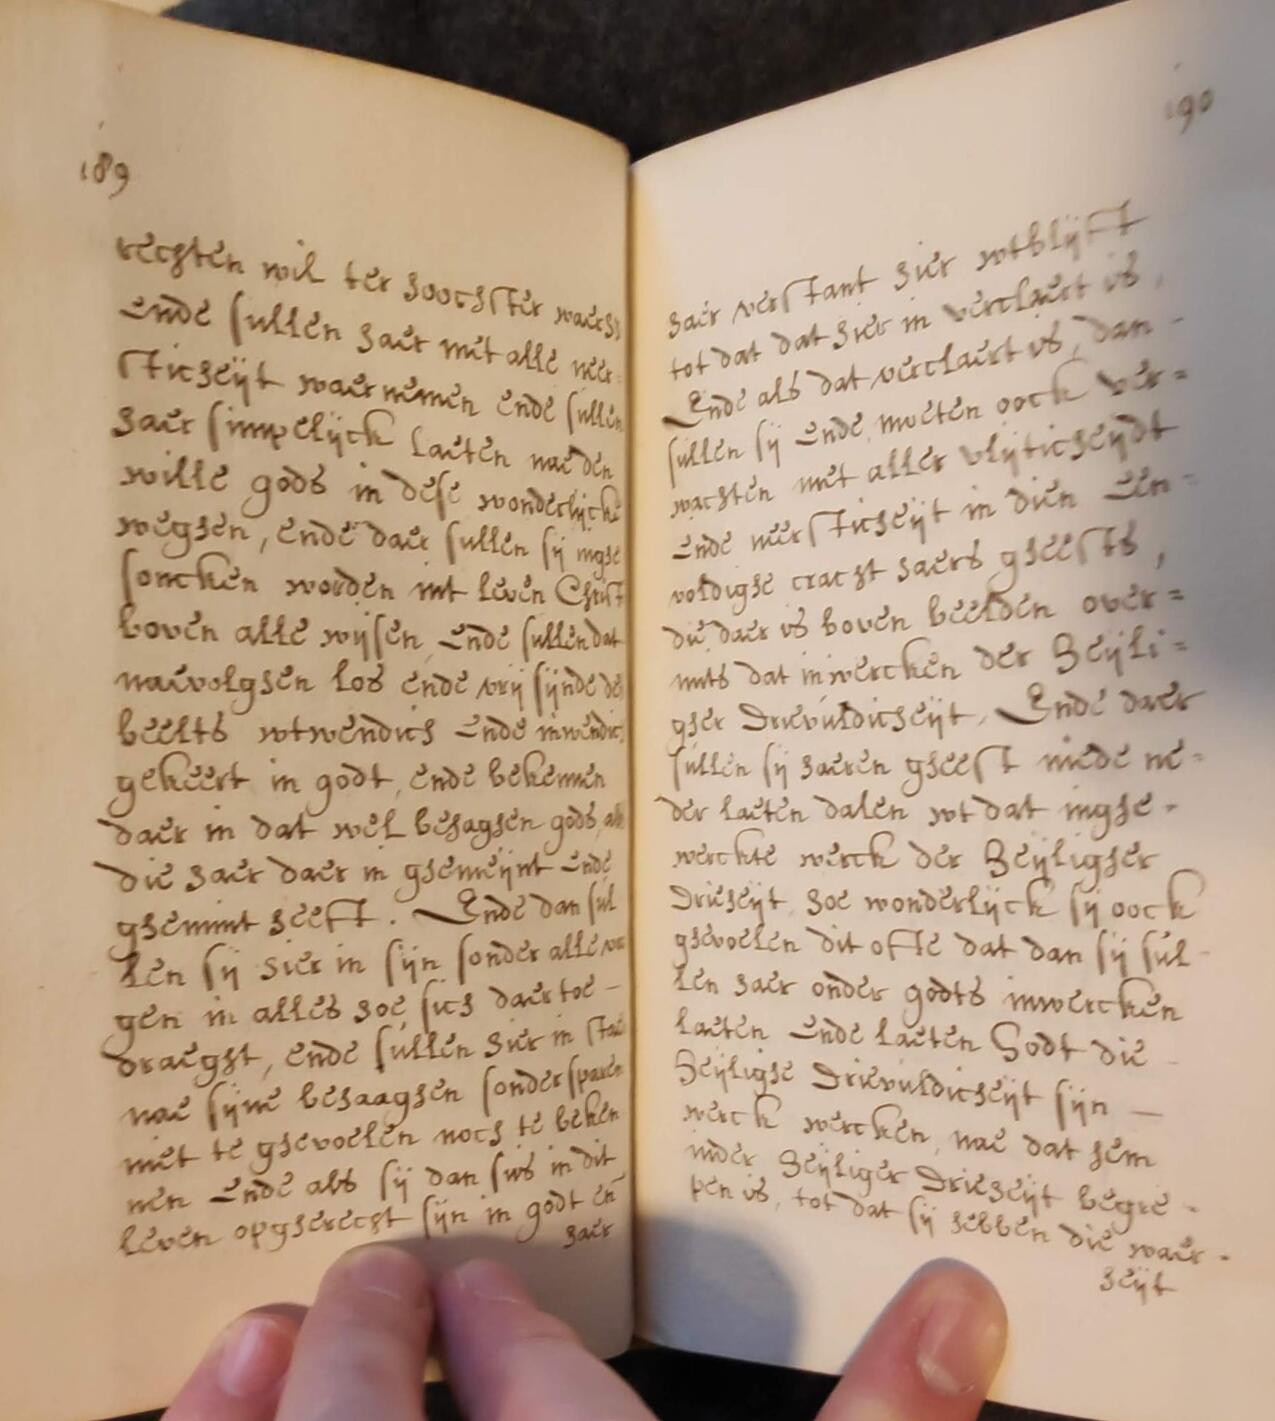 189
rechten wil ter hoochster waerh
Ende sullen haer met alle neer
sticheijt waernemen ende sullen
haer simpelijck laeten nae den
wille gods in dese wonderlijcke
weghen, ende daer sullen sij inghe
soncken worden int leven Christ
boven alle wijsen, Ende sullen dat
naevolghen los ende vrij sijnde
beelts wtwendich Ende inwendich
gekeert in godt, ende bekennen
daer in dat wel behaghen gods,
die haer daer in ghemeijnt Ende
ghemint heeft. Ende dan sul
len sij hier in sijn sonder alle
gen in alles soe sich daer toe -
draeght, ende sullen hier in
nae sijne behaaghen sonder sparen
niet te ghevoelen noch te beken
nen Ende als sij dan sus in dit
leven opgherecht sijn in godt en
haer
190
haer verstant hier wtblijft
tot dat dat hier in verclaert is,
Ende als dat verclaert is, dan -
sullen sij Ende moeten oock ver=
wachten met aller vlijticheydt
Ende neersticheijt in dien Een=
voldighe cracht haers gheests,
die daer is boven beelden over=
mits dat inwercken der Heijli=
gher Drievuldicheijt, Ende daer
sullen sij haeren gheest mede ne=
der laeten dalen wt dat inghe=
werckte werck der Heijligher
Drieheijt, hoe wonderlijck sij oock
ghevoelen dit ofte dat dan sij sul-
len haer onder godts inwercken
laeten Ende laeten Godt die -
Heijlighe Drievuldicheijt sijn —
werck wercken, nae dat hem
inder Heijliger Drieheijt begre=
pen is, tot dat sij hebben die waer=
heijt